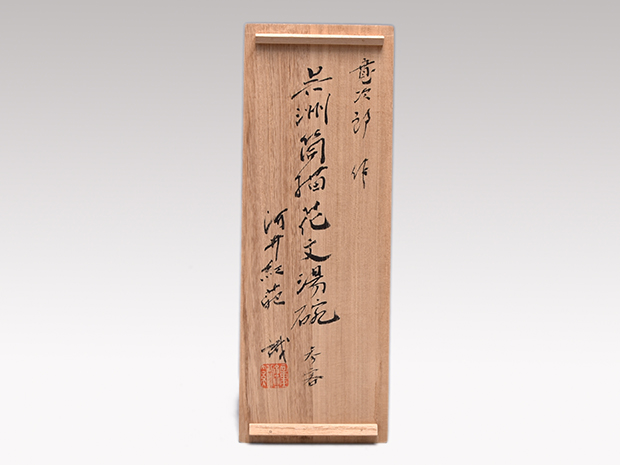 寛次郎 作
呉洲筒描花文湯碗 五客
河井紅葩 識